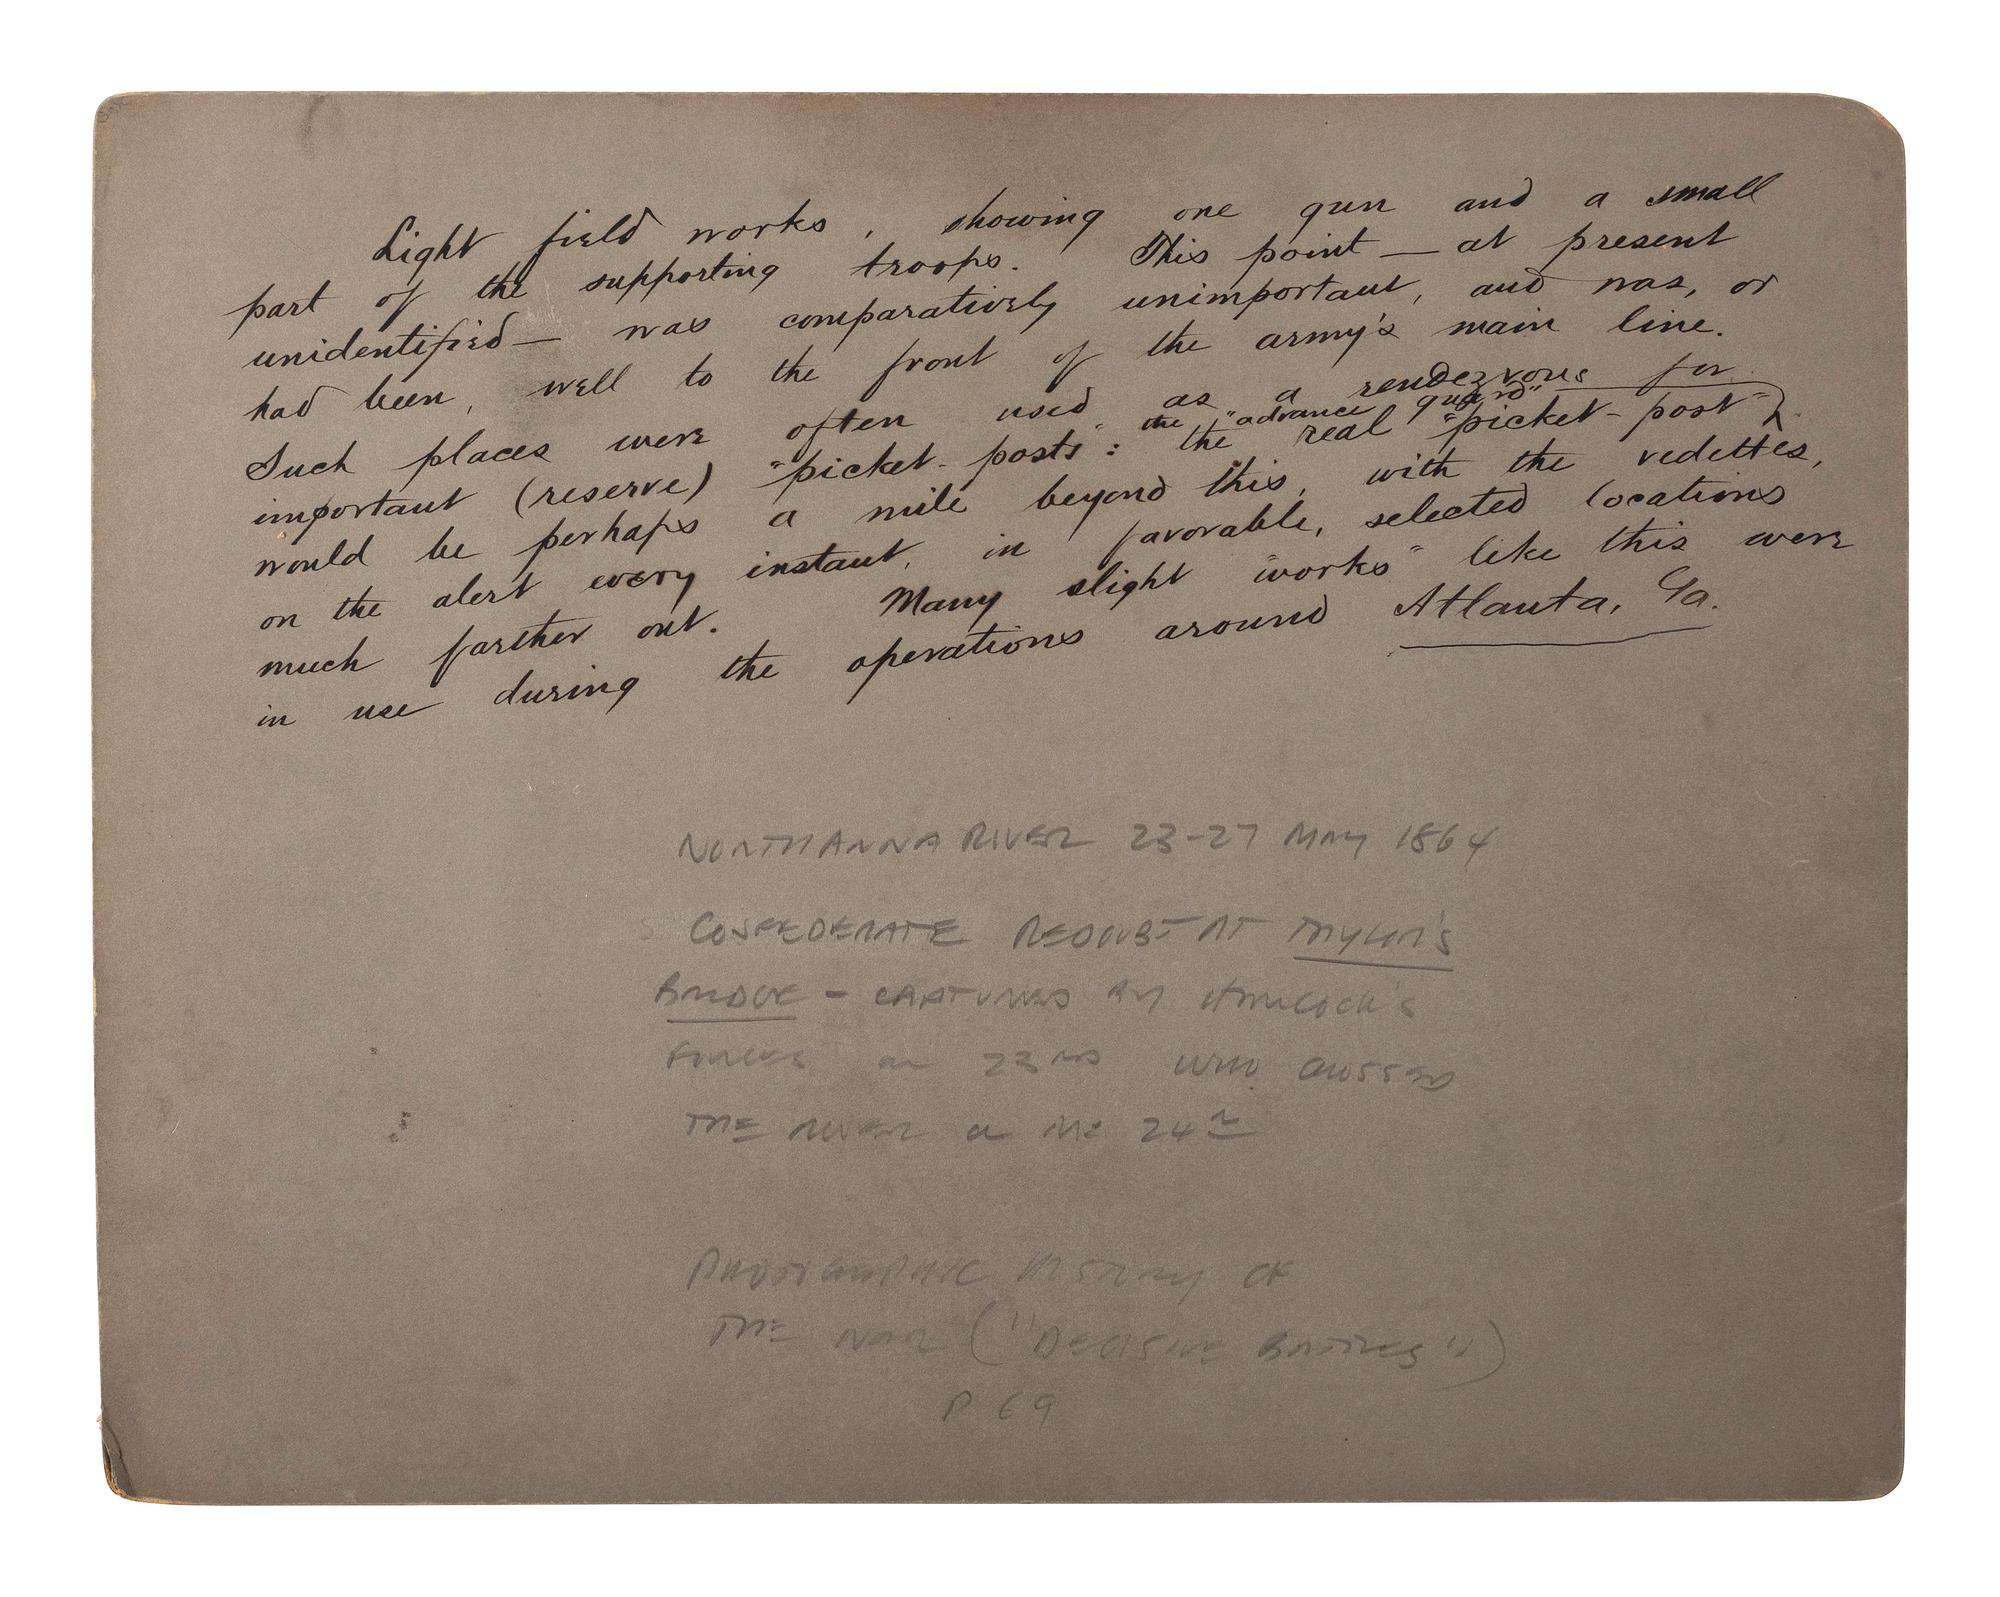 Light field works, showing one gun and a small
part of the supporting troops. This point — at present
unidentified — was comparatively unimportant, and was, or
had been, well to the front of the army's main line.
Such places were often used as a rendezvous for
the "advance guard"
important (reserve) "picket-posts": the real "picket-post"
would be perhaps a mile beyond this, with the vedettes,
on the alert every instant, in favorable, selected locations
much farther out. Many slight "works" like this were
in use during the operations around Atlanta, Ga.
NORTH ANNA RIVER 23-27 MAY 1864
CONFEDERATE REDOUBT AT TAYLOR'S
BRIDGE - CAPTURED BY HANCOCK'S
FORCES on 23RD WHO CROSSED
THE RIVER on THE 24TH
PHOTOGRAPHIC HISTORY OF
THE WAR ("DECISIVE BATTLES")
P 69